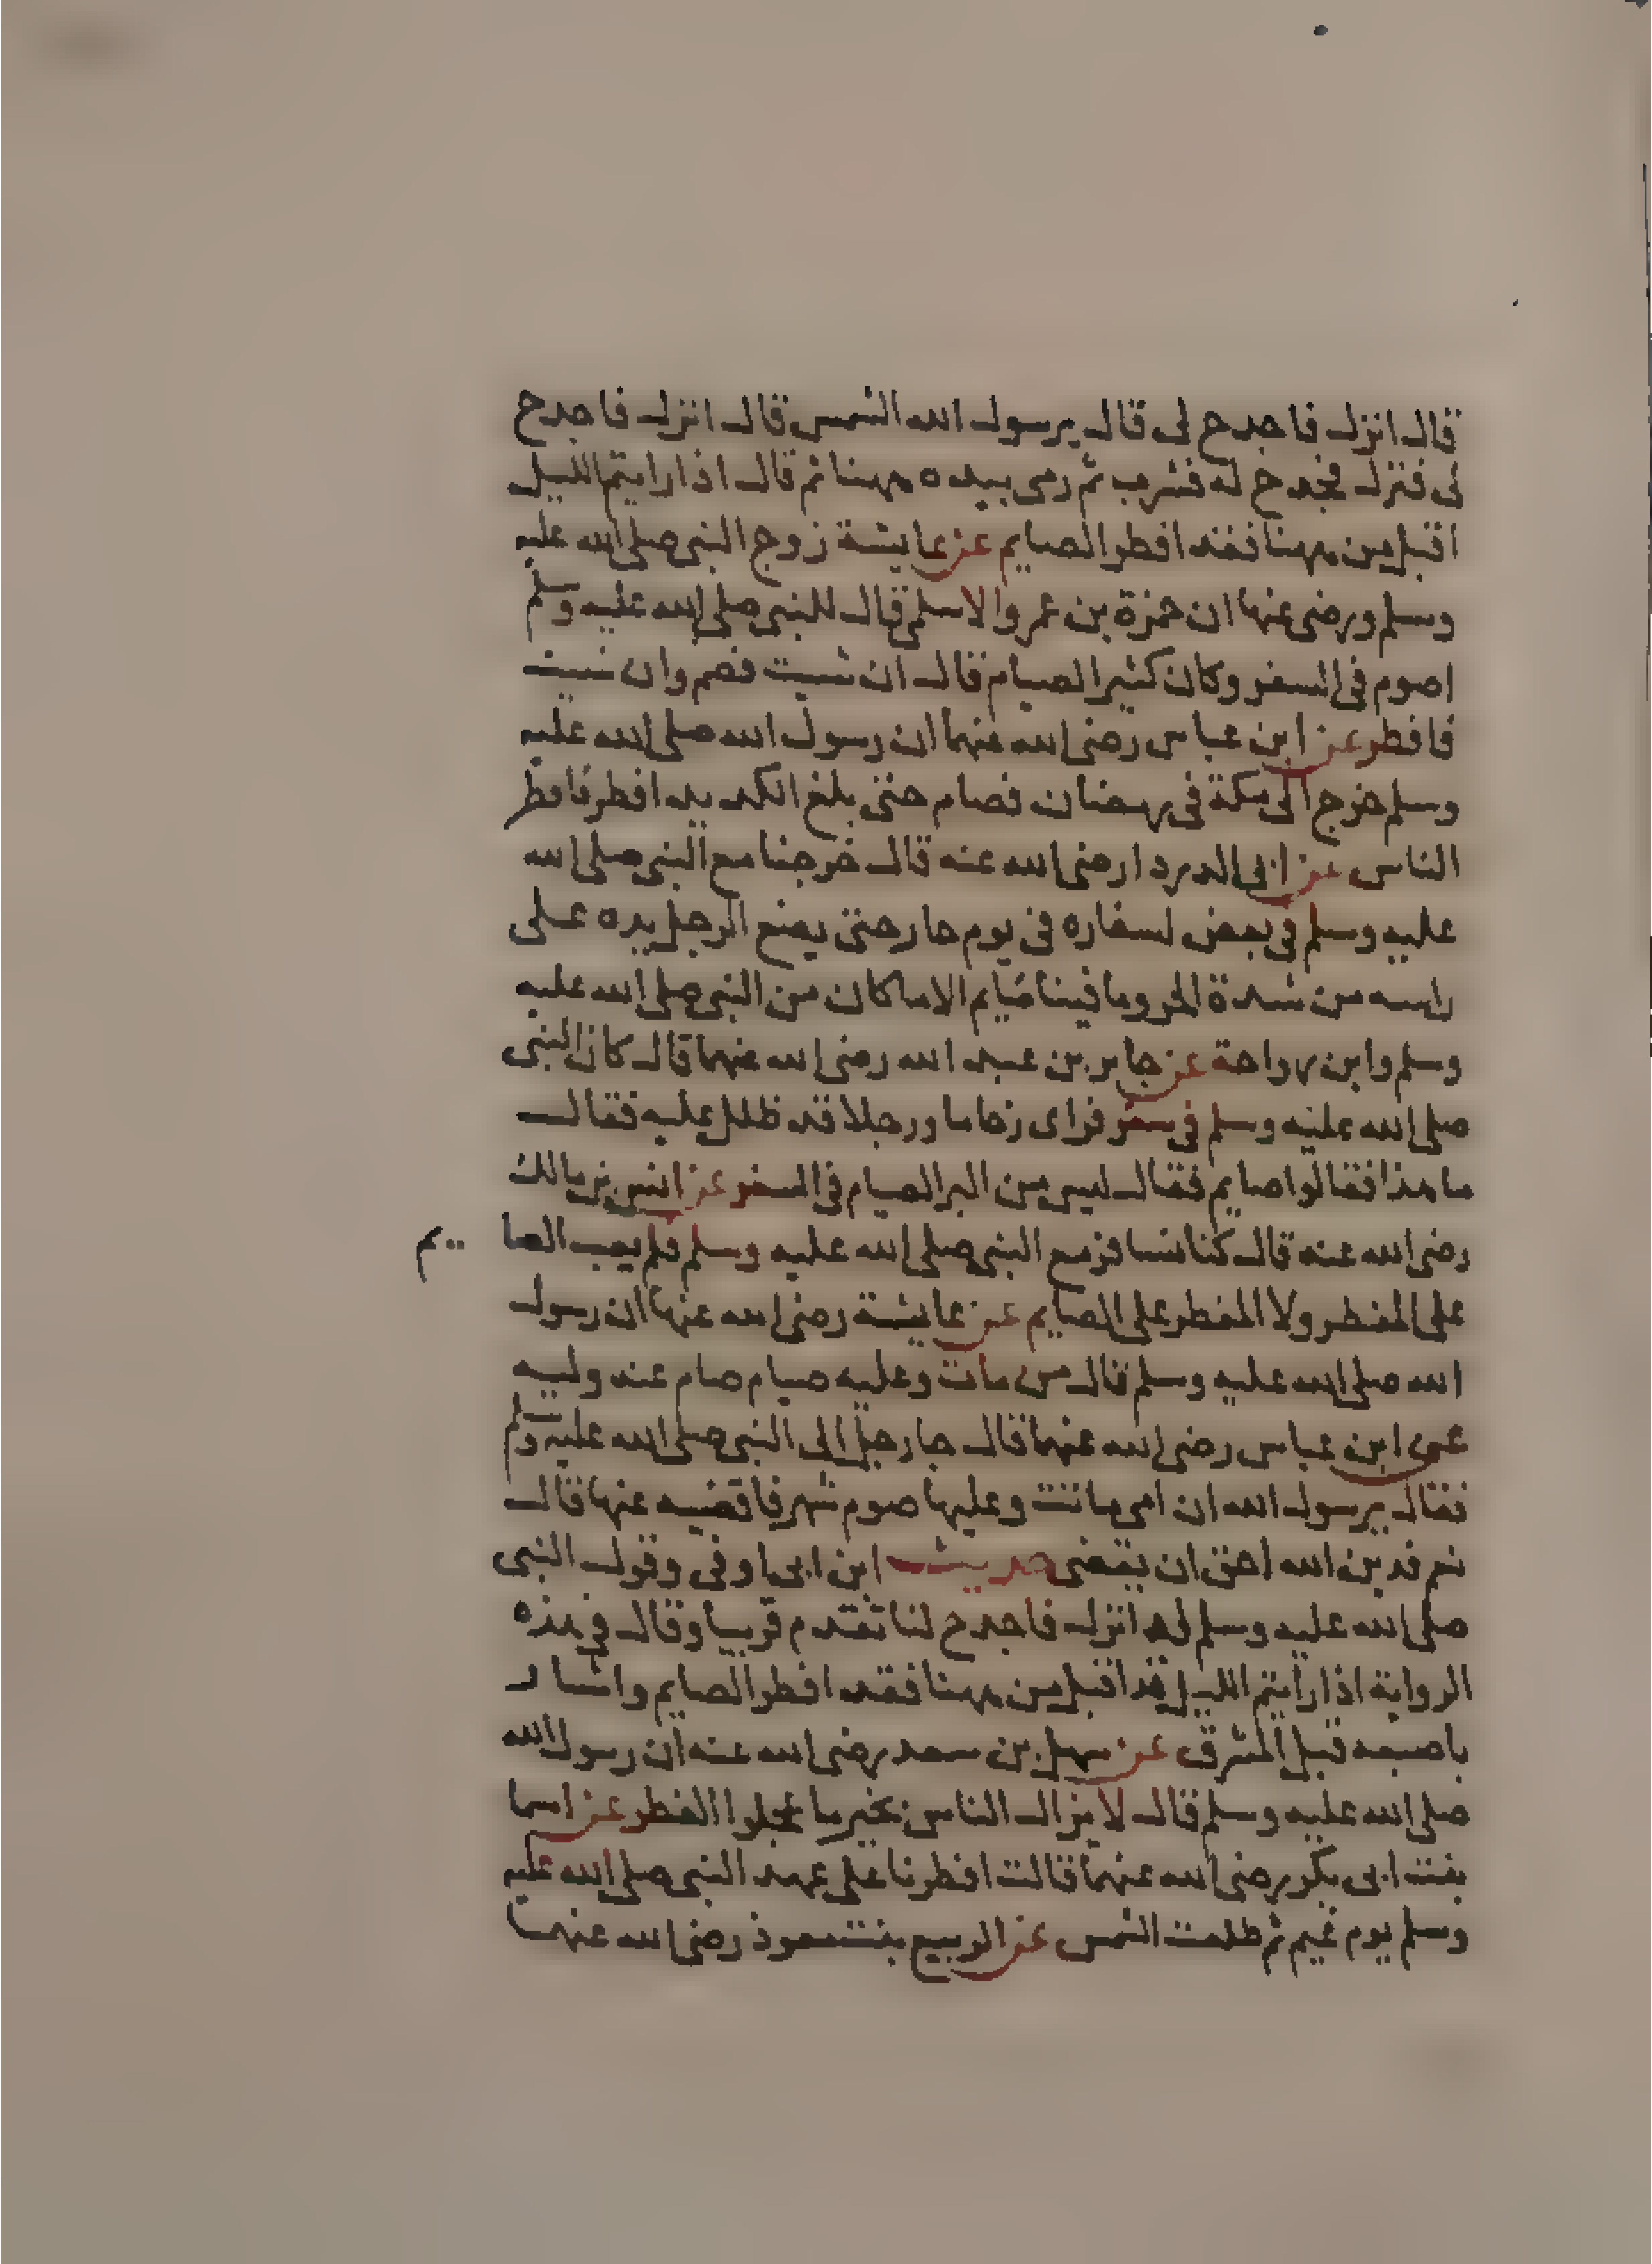 قال انزل فاجدح لى قال يرسول الله الشمس قال انزل فاجدح
لى فنزل فجدح له فشرب ثم رمى بيده ههنا ثم قال اذا رايتم الليل
اقبل من ههنا فقد افطر الصايم عن عايشة زوج النبى صلى الله عليه
وسلم ورضى عنها ان حمزة بن عمرو الاسلمى قال للنبى صلى الله عليه وسلم
اصوم فى السفر وكان كثير الصيام قال ان شيت فصم وان شيت
فافطر عن ابن عباس رضى الله عنهما ان رسول الله صلى الله عليه
وسلم خرج الى مكة فى رمضان فصام حتى بلغ الكديد افطر فافطر
الناس عن ابى الدردا رضى الله عنه قال خرجنا مع النبى صلى الله
عليه وسلم فى بعض اسفاره فى يوم حار حتى يضع الرجل يده على
راسه من شدة الحر وما فينا صايم الا ما كان من النبى صلى الله عليه
وسلم وابن رواحة عن جابر بن عبد الله رضى الله عنهما قال كان النبى
صلى الله عليه وسلم فى سفر فراى زحاما ورجلا قد ظلل عليه فقال
ما هذا فقالوا صايم فقال ليس من البر الصيام فى السفر عن انس بن مالك
رضى الله عنه قال كنا نسافر مع النبى صلى الله عليه وسلم فلم يعب الصايم
على المفطر ولا المفطر على الصايم عن عايشة رضى الله عنها ان رسول
الله صلى الله عليه وسلم قال من مات وعليه صيام صام عنه وليه
عن ابن عباس رضى الله عنهما قال جا رجل الى النبى صلى الله عليه وسلم
فقال يرسول الله ان امى ماتت وعليها صوم شهر فاقضيه عنها قال
نعم فدين الله احق ان يقضى حديث ابن ابى اوفى وقول النبى
صلى الله عليه وسلم له انزل فاجدح لنا تقدم قريبا وقال فى هذه
الرواية اذا رايتم الليل قد اقبل من ههنا فقد افطر الصايم واشار
باصبعه قبل المشرق عن سهل بن سعد رضى الله عنه ان رسول الله
صلى الله عليه وسلم قال لا يزال الناس بخير ما عجلوا الفطر عن اسما
بنت ابى بكر رضى الله عنهما قالت افطرنا على عهد النبى صلى الله عليه
وسلم يوم غيم ثم طلعت الشمس عن الربيع بنت معوذ رضى الله عنها